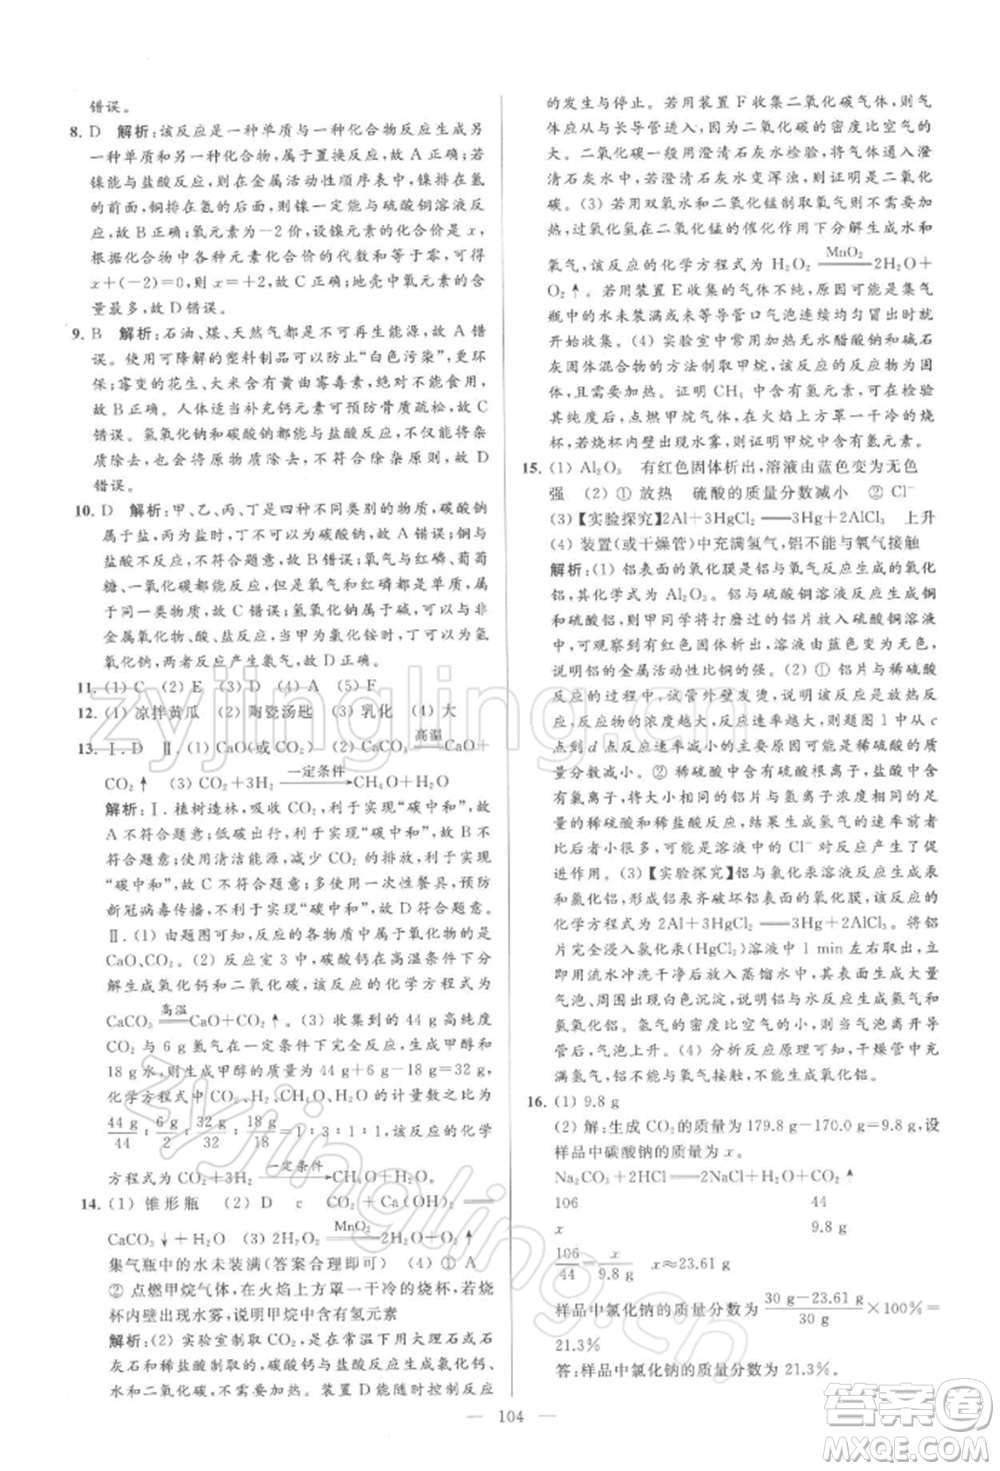 错误。
8. D 解析:该反应是一种单质与一种化合物反应生成另
一种单质和另一种化合物,属于置换反应,故 A 正确;若
镍能与盐酸反应,在金属活动性顺序表中,镍排在氢
的前面,铜排在氢的后面,则镍一定能与硫酸铜溶液反
应,故 B 正确;氧元素为-2价,设镍元素的化合价是 x,
根据化合物中各种元素化合价的代数和等于0,有
x+(-2)=0,则 x=+2,故 C 正确;地壳中氧元素的含
量最多,故 D 错误。
9. B 解析:石油、煤、天然气都是不可再生能源,故 A 错
误。使用可降解的塑料制品可以防止“白色污染”,更环
保;霉变的花生、大米含有黄曲霉毒素,绝对不能食用,
故 B 正确。人体适当补充钙元素可预防骨质疏松,故 C
错误。氢氧化钠和碳酸钠都能与盐酸反应,不仅能将杂
质除去,还将原物质除去了,不符合除杂原则,故 D
错误。
10. D 解析:甲、乙、丙、丁是四种不同类别的物质,碳酸钠
属于盐,丙为盐时,丁不可以为碳酸钠,故 A 错误;铜与
盐酸不反应,不符合题意,故 B 错误;氧气与红磷、葡萄
糖、一氧化碳都能反应,但是氧气和红磷都是单质,
属于同一类物质,故 C 错误;氢氧化钠属于碱,可以与非
金属氧化物、酸、盐反应,丙可以为氯化铵时,丁可以为氢
氧化钠,两者反应产生氨气,故 D 正确。
11. (1) C (2) E (3) D (4) A (5) F
12. (1) 凉拌黄瓜 (2) 陶瓷汤匙 (3) 乳化 (4) 大
13. Ⅰ. D Ⅱ. (1) CaO(或 CO₂) (2) CaCO₃ 高温══ CaO+
CO₂↑ (3) CO₂+3H₂ 一定条件→ CH₄O+H₂O
解析:Ⅰ. 植树造林,吸收 CO₂,利于实现“碳中和”,故
A 不符合题意;低碳出行,利于实现“碳中和”,故 B 不
符合题意;使用清洁能源,减少 CO₂ 的排放,利于实现
“碳中和”,故 C 不符合题意;使用一次性餐具,预防
新冠病毒传播,不利于实现“碳中和”,故 D 符合题意。
Ⅱ. (1) 由题图可知,反应的各物质中属于氧化物的是
CaO、CO₂。(2) 反应室 3 中,碳酸钙在高温条件下分
解生成氧化钙和二氧化碳,该反应的化学方程式为
CaCO₃ 高温══ CaO+CO₂↑。(3) 收集到的 44 g 高纯度
CO₂ 与 6 g 氢气在一定条件下完全反应,生成甲醇和
18 g 水,可知生成甲醇的质量为 44 g+6 g-18 g=32 g,
化学方程式中 CO₂、H₂、CH₄O、H₂O 的计量数之比为
44 g/44 : 6 g/2 : 32 g/32 : 18 g/18 =1:3:1:1,该反应的化学
方程式为 CO₂+3H₂ 一定条件→ CH₄O+H₂O。
14. (1) 锥形瓶 (2) D c CO₂+Ca(OH)₂ ══
CaCO₃↓+H₂O (3) 2H₂O₂ MnO₂══ 2H₂O+O₂↑
集气瓶中的水未装满(答案合理即可) (4) ① A
② 点燃甲烷气体,在火焰上方罩一干冷的烧杯,烧
杯内壁出现水雾,说明甲烷中含有氢元素
解析:(2) 实验室制取 CO₂,常用大理石或石
灰石和稀盐酸制取的,反应生成氯化钙、
水和二氧化碳,不需要加热。装置 D 能随时控制反应
的发生与停止。若用装置 F 收集二氧化碳气体,则气
体应从与长导管进入,因为二氧化碳的密度比空气的
大。二氧化碳一般用澄清石灰水检验,将气体通入澄
清石灰水中,若澄清石灰水变浑浊,则说明是二氧化
碳。(3) 若用双氧水和二氧化锰制取氧气,则不需加
热,过氧化氢在二氧化锰的催化作用下分解生成水和
氧气,该反应的化学方程式为 2H₂O₂ MnO₂══ 2H₂O+
O₂↑。若用装置 E 收集的气体不纯,可能是因为集气
瓶中的水未装满或未等导管口气泡连续均匀冒出就
开始收集。(4) 实验室常用加热无水醋酸钠和碱石
灰固体混合物的方法制取甲烷,该反应为固体反应,
且需要加热。证明 CH₄ 中含有氢元素,可在检验
其纯度后,点燃甲烷气体,在火焰上方罩一干冷的烧
杯,若烧杯内壁出现水雾,则证明甲烷中含有氢元素。
15. (1) Al₂O₃ 有红色固体析出,溶液由蓝色变为无色
强 (2) ① 放热 硫酸的质量分数减小 ② Cl⁻
(3)【实验探究】2Al+3HgCl₂══3Hg+2AlCl₃ 上升
(4) 装置(或干燥管)中充满氢气,铝不能与氧气接触
解析:(1) 铝表面的氧化膜是铝与氧气反应生成的氧化
铝,其化学式为 Al₂O₃。铝与硫酸铜溶液反应生成铜
和硫酸铝,则某同学们将打磨过的铝片放入硫酸铜溶液中,
可观察到有红色固体析出、溶液由蓝色变为无色,
说明铝的金属活动性比铜的强。(2) ① 铝片与稀硫酸
反应过程中,试管外壁发烫,说明该反应是放热反
应,反应速率与温度、反应物浓度有关,所以从 c
点到 d 点反应速率减小的主要原因是稀硫酸的质量分
数减小。② 稀硫酸中的阴离子是硫酸根离子,盐酸中的
是氯离子,用相同的铝片与氢离子浓度相同
的稀硫酸和稀盐酸反应,结果发现生成氢气的速率前者
比后者慢很多,由此推测溶液中的 Cl⁻ 对此反应起促
进作用。(3)【实验探究】铝与氯化汞溶液反应生成汞和
氯化铝,汞齐破坏铝表面的氧化膜,该反应的化
学方程式为 2Al+3HgCl₂══3Hg+2AlCl₃。将铝
片完全浸入氯化汞(HgCl₂)溶液中 1 min 左右取出,立
即用流水冲洗干净后放入蒸馏水中,表面生成大量
气泡,周围出现白色沉淀,说明铝与水反应生成氢气和
氢氧化铝。氢气的密度比空气的小,所以气流离开导
管后,气泡上升。(4) 分析反应原理可知,干燥管中充
满氢气,铝不能与氧气接触,不能生成氧化铝。
16. (1) 9.8 g
(2) 解:生成 CO₂ 的质量为 179.8 g-170.0 g=9.8 g,设
样品中碳酸钠的质量为 x。
Na₂CO₃+2HCl══2NaCl+H₂O+CO₂↑
106 44
x 9.8 g
106/44 = x/9.8 g x≈23.61 g
样品中氯化钠的质量分数为 (30 g-23.61 g)/30 g ×100%=
21.3%
答:样品中氯化钠的质量分数为 21.3%。
— 104 —
zyjingling.cn
zyjingling.cn
答案圈
MXQE.COM